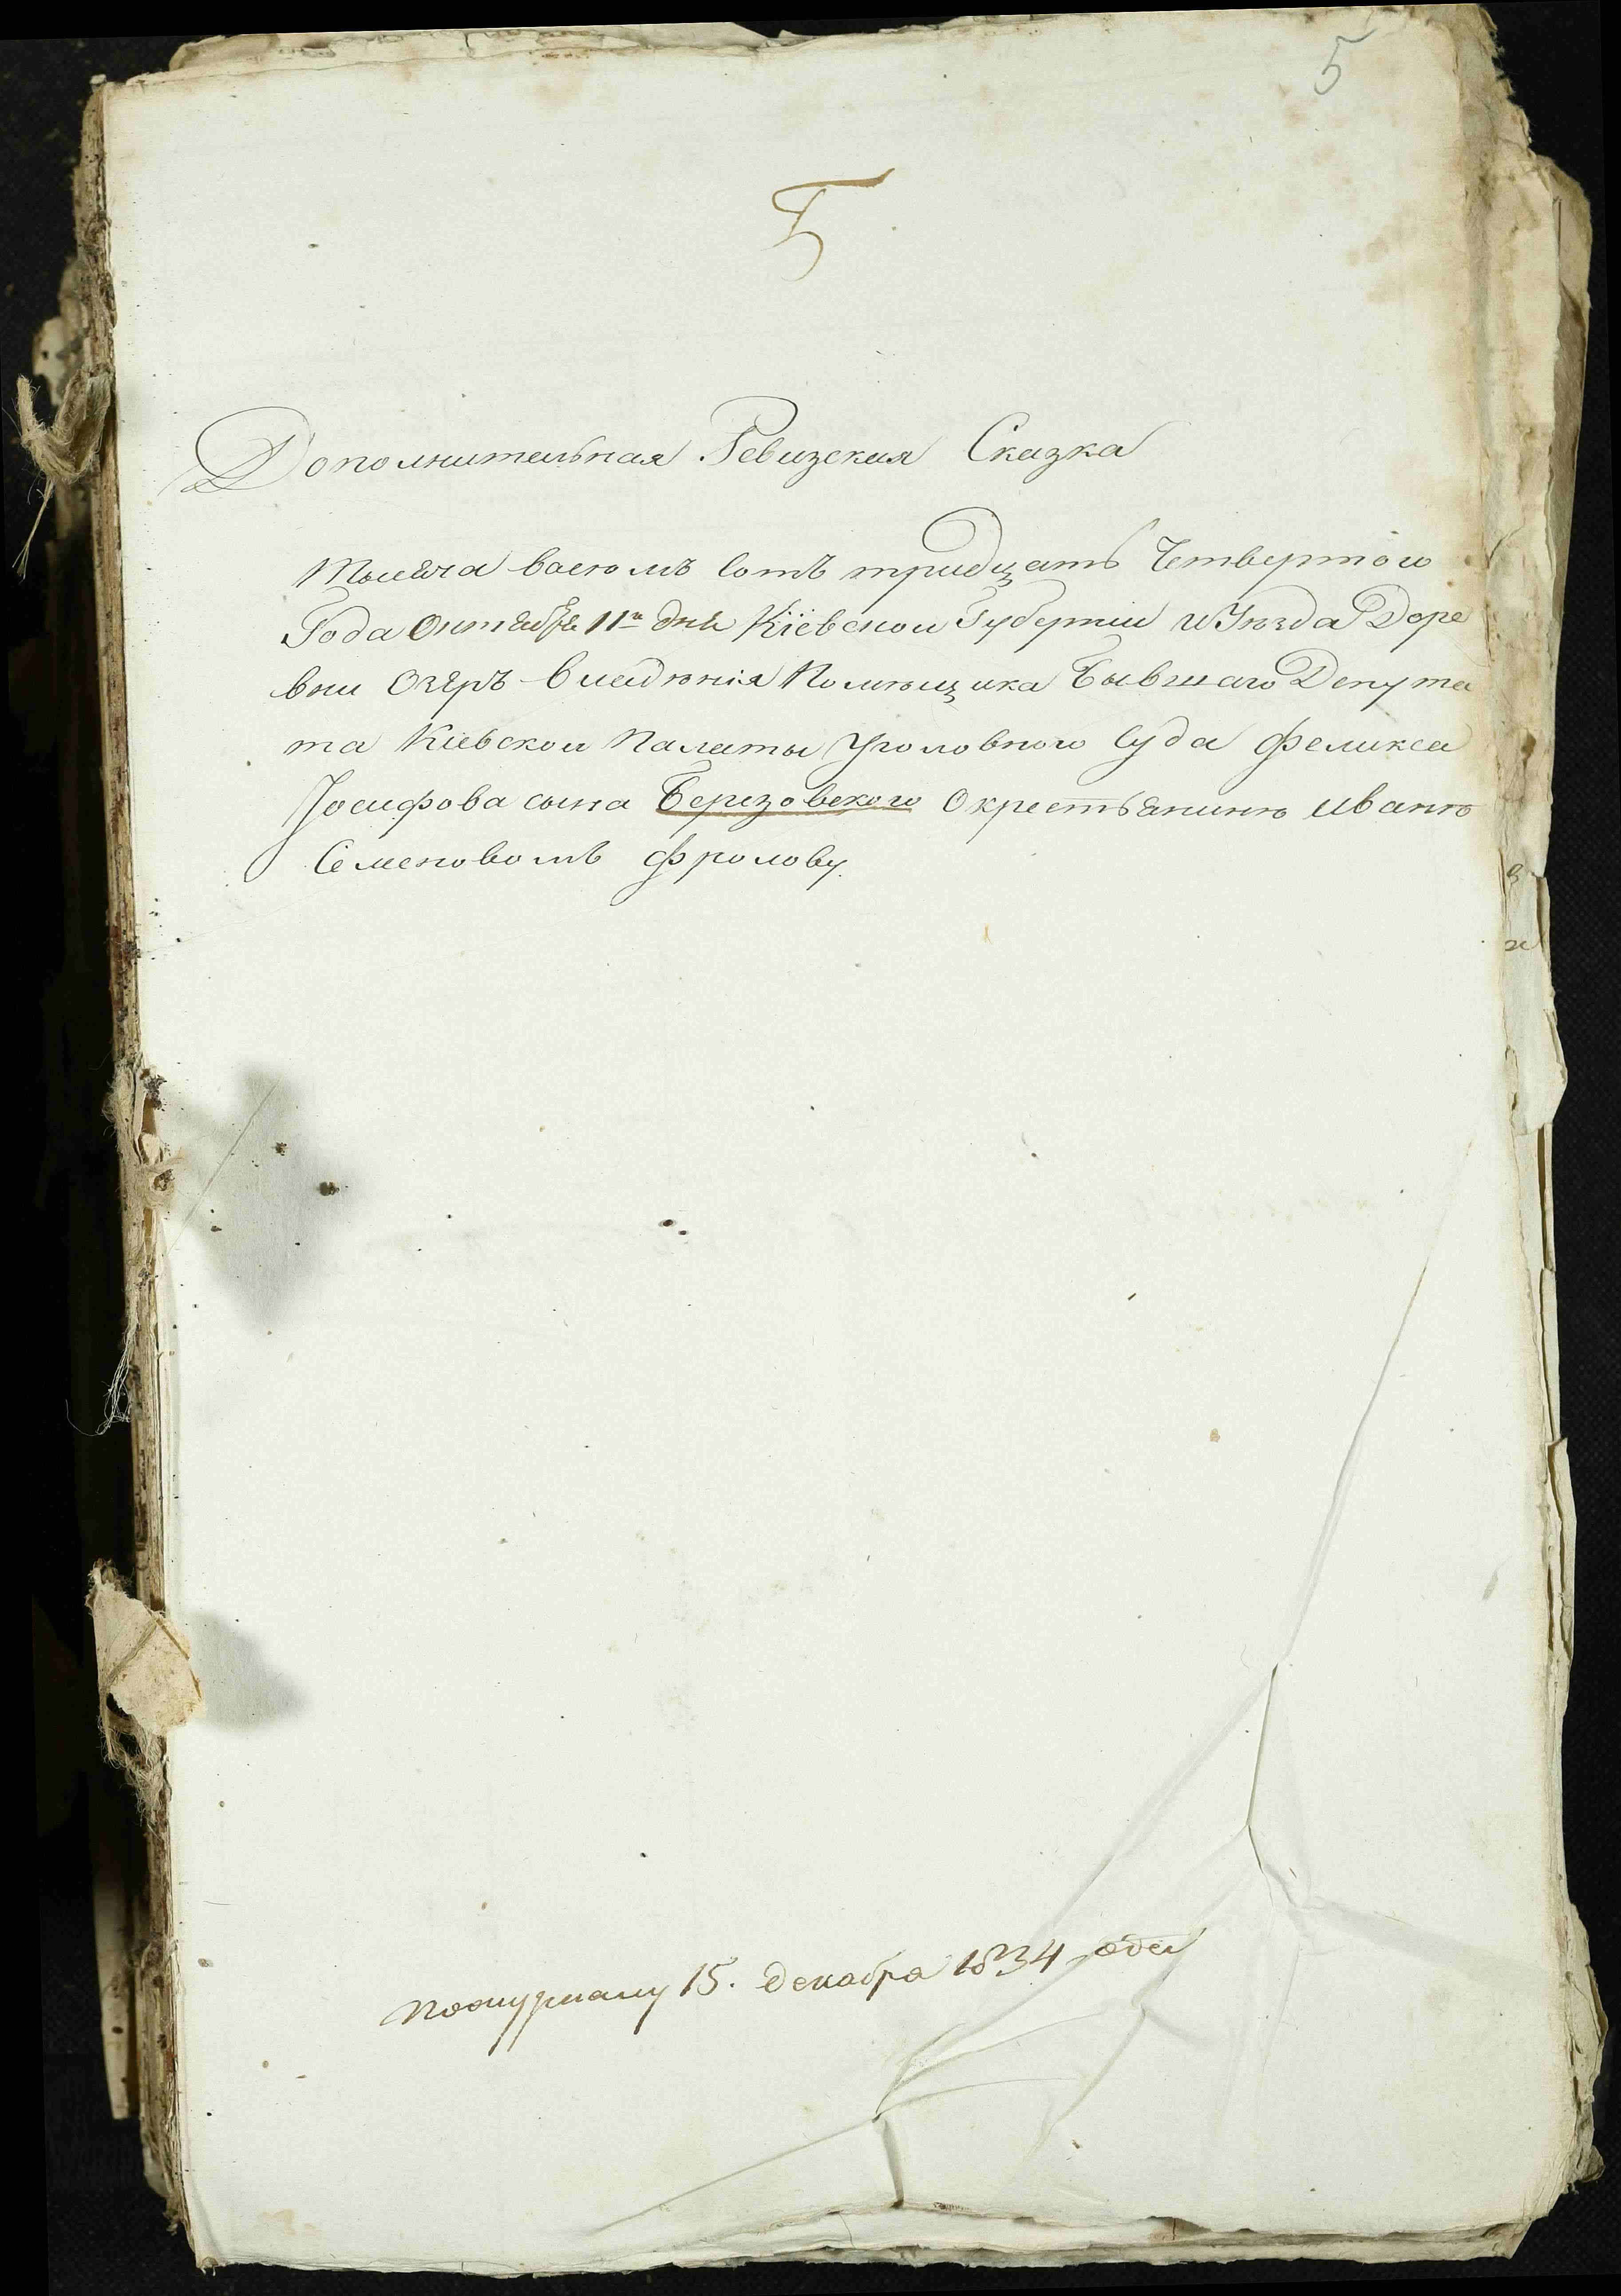 5
Б
Дополнительная Ревизская Сказка
Тысяча восемъ сотъ тридцать Четвертого
Года Октября 11го дня Кіевскои Губерніи и Уѣзда Дере
вни Озеръ владѣнія Помѣщика Бывшаго Депута
та Кіевскои Палаты Уголовного Суда Феликса
Іосифова сына Березовского О крестьянинѣ Иванѣ
Семеновомъ Фролову.
По журналу 15. декабря 1834 года